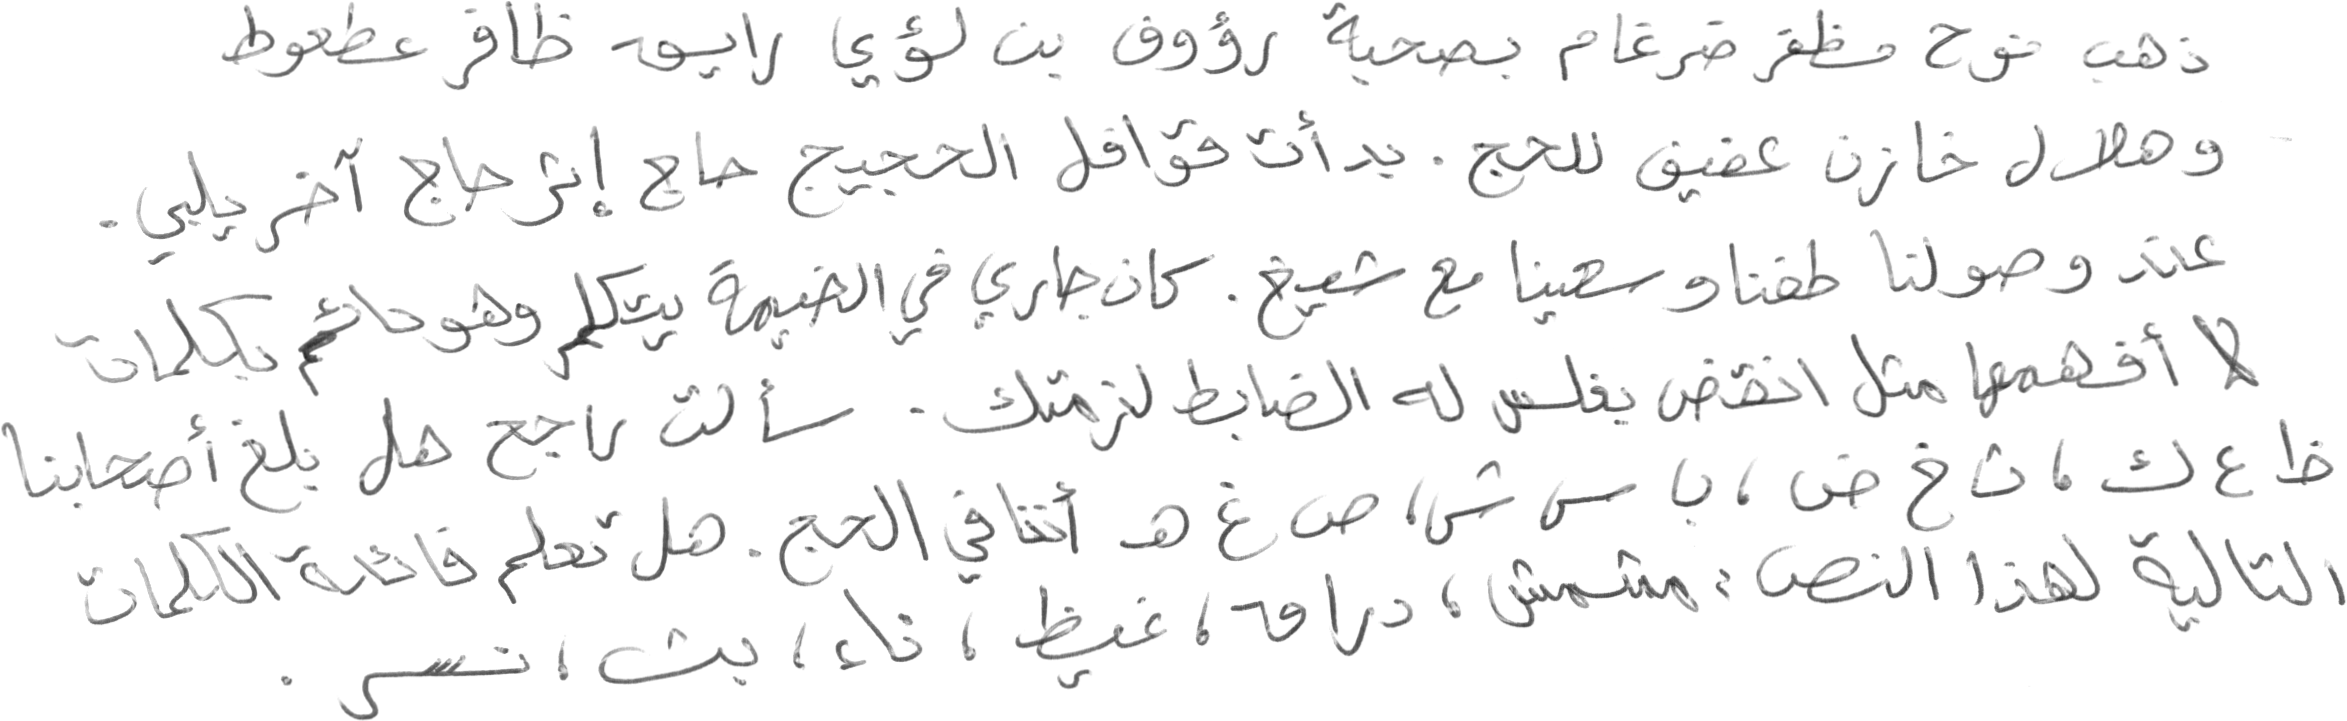 ذهب نوح مظفر ضرغام بصحبة رؤوف بن لؤي رايق ظافر عطعوط
وهلال خازن عفيق للحج . بدأت قوافل الحجيج حاج إثر حاج آخر يلبي .
عند وصولنا طفنا وسعينا مع شيخ . كان جاري في الخيمة يتكلم وهو حائم بكلمات
لا أفهمها مثل انقض يغلس له الضابط لزمتك . سألت راجح هل بلغ أصحابنا
ظ ع ك ، ث خ ض ، ب س ش ، ص غ هـ أننا في الحج . هل تعلم فائدة الكلمات
التالية لهذا النص : مشمش ، دراق ، غيظ ، ناء ، بث ، نسر .